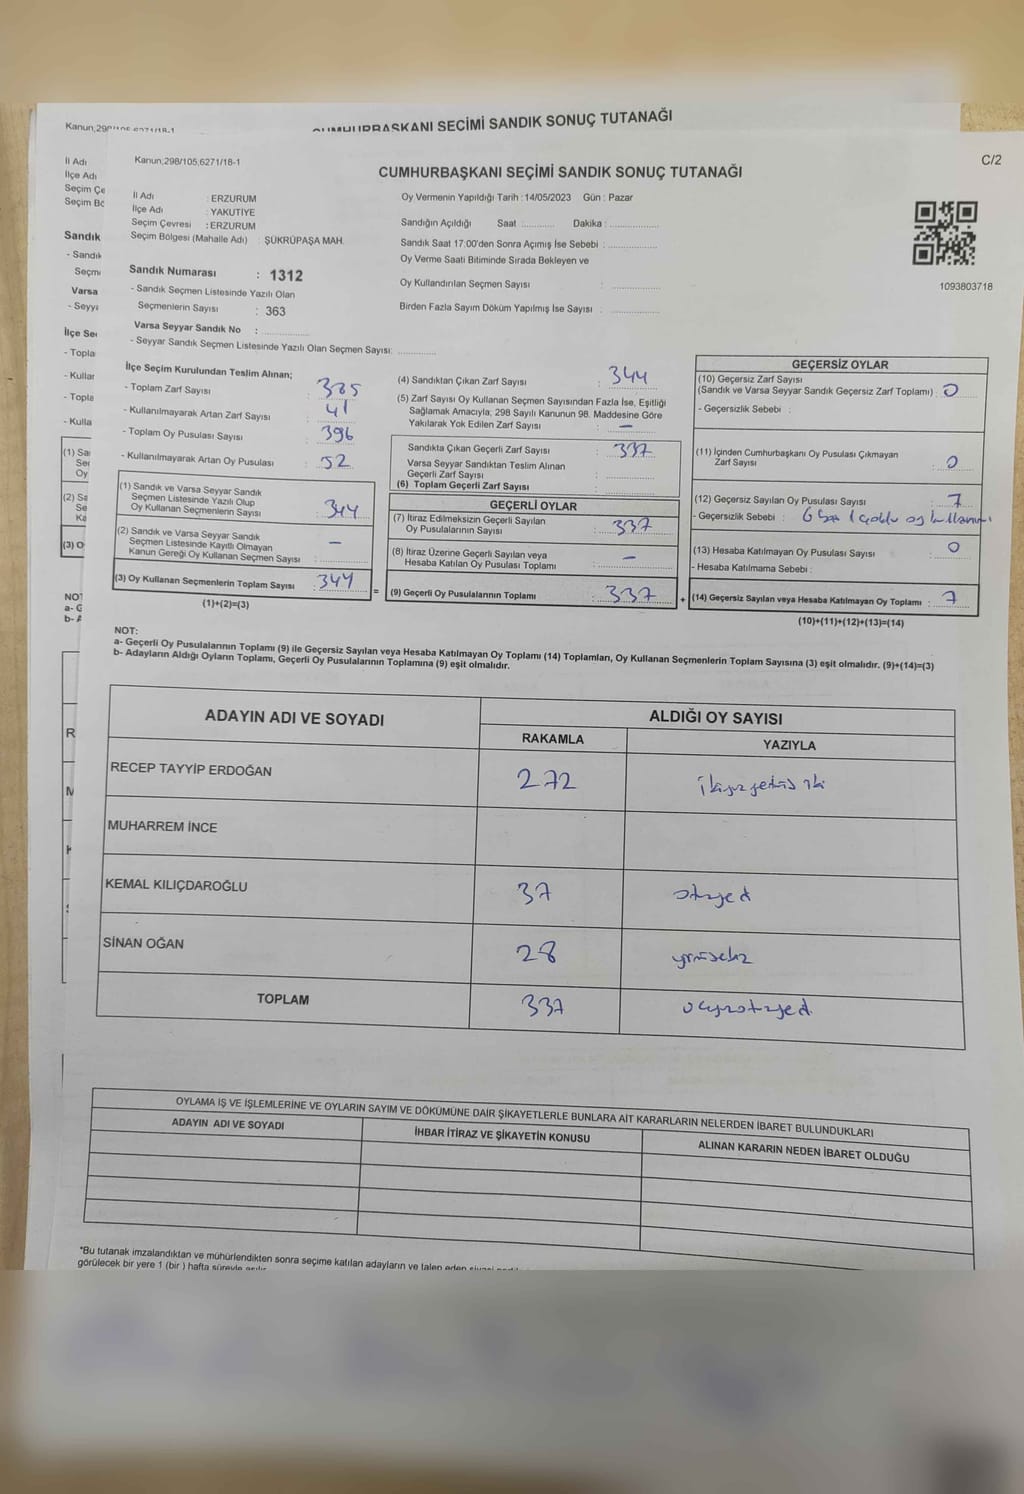 CUMHURBAŞKANI SECİMİ SANDIK SONUÇ TUTANAĞI
Kanun;298/105;6271/18-1
C/2
CUMHURBAŞKANI SEÇİMİ SANDIK SONUÇ TUTANAĞI
İl Adı : ERZURUM
İlçe Adı : YAKUTİYE
Seçim Çevresi : ERZURUM
Seçim Bölgesi (Mahalle Adı) : ŞÜKRÜPAŞA MAH.
Sandık Numarası : 1312
- Sandık Seçmen Listesinde Yazılı Olan
Seçmenlerin Sayısı : 363
Varsa Seyyar Sandık No :
- Seyyar Sandık Seçmen Listesinde Yazılı Olan Seçmen Sayısı:
Oy Vermenin Yapıldığı Tarih : 14/05/2023 Gün : Pazar
Sandığın Açıldığı Saat : Dakika :
Sandık Saat 17:00'den Sonra Açımış İse Sebebi :
Oy Verme Saati Bitiminde Sırada Bekleyen ve
Oy Kullandırılan Seçmen Sayısı :
Birden Fazla Sayım Döküm Yapılmış İse Sayısı :
1093803718
İlçe Seçim Kurulundan Teslim Alınan;
- Toplam Zarf Sayısı : 385
- Kullanılmayarak Artan Zarf Sayısı : 41
- Toplam Oy Pusulası Sayısı : 396
- Kullanılmayarak Artan Oy Pusulası : 52
(1) Sandık ve Varsa Seyyar Sandık
Seçmen Listesinde Yazılı Olup
Oy Kullanan Seçmenlerin Sayısı : 344
(2) Sandık ve Varsa Seyyar Sandık
Seçmen Listesinde Kayıtlı Olmayan
Kanun Gereği Oy Kullanan Seçmen Sayısı : —
(3) Oy Kullanan Seçmenlerin Toplam Sayısı : 344
(1)+(2)=(3)
(4) Sandıktan Çıkan Zarf Sayısı : 344
(5) Zarf Sayısı Oy Kullanan Seçmen Sayısından Fazla İse, Eşitliği
Sağlamak Amacıyla, 298 Sayılı Kanunun 98. Maddesine Göre
Yakılarak Yok Edilen Zarf Sayısı : —
Sandıkta Çıkan Geçerli Zarf Sayısı : 337
Varsa Seyyar Sandıktan Teslim Alınan
Geçerli Zarf Sayısı :
(6) Toplam Geçerli Zarf Sayısı :
GEÇERLİ OYLAR
(7) İtiraz Edilmeksizin Geçerli Sayılan
Oy Pusulalarının Sayısı : 337
(8) İtiraz Üzerine Geçerli Sayılan veya
Hesaba Katılan Oy Pusulası Toplamı : —
= (9) Geçerli Oy Pusulalarının Toplamı : 337 +
GEÇERSİZ OYLAR
(10) Geçersiz Zarf Sayısı
(Sandık ve Varsa Seyyar Sandık Geçersiz Zarf Toplamı) : 0
- Geçersizlik Sebebi :
(11) İçinden Cumhurbaşkanı Oy Pusulası Çıkmayan
Zarf Sayısı : 0
(12) Geçersiz Sayılan Oy Pusulası Sayısı : 7
- Geçersizlik Sebebi : 6 boş 1 çoklu oy kullanımı
(13) Hesaba Katılmayan Oy Pusulası Sayısı : 0
- Hesaba Katılmama Sebebi :
(14) Geçersiz Sayılan veya Hesaba Katılmayan Oy Toplamı : 7
(10)+(11)+(12)+(13)=(14)
NOT:
a- Geçerli Oy Pusulalarının Toplamı (9) ile Geçersiz Sayılan veya Hesaba Katılmayan Oy Toplamı (14) Toplamları, Oy Kullanan Seçmenlerin Toplam Sayısına (3) eşit olmalıdır. (9)+(14)=(3)
b- Adayların Aldığı Oyların Toplamı, Geçerli Oy Pusulalarının Toplamına (9) eşit olmalıdır.
ADAYIN ADI VE SOYADI ALDIĞI OY SAYISI
RAKAMLA YAZIYLA
RECEP TAYYİP ERDOĞAN 272
MUHARREM İNCE
KEMAL KILIÇDAROĞLU 37 otuzyedi
SİNAN OĞAN 28
TOPLAM 337
OYLAMA İŞ VE İŞLEMLERİNE VE OYLARIN SAYIM VE DÖKÜMÜNE DAİR ŞİKAYETLERLE BUNLARA AİT KARARLARIN NELERDEN İBARET BULUNDUKLARI
ADAYIN ADI VE SOYADI İHBAR İTİRAZ VE ŞİKAYETİN KONUSU ALINAN KARARIN NEDEN İBARET OLDUĞU
*Bu tutanak imzalandıktan ve mühürlendikten sonra seçime katılan adayların ve talep eden
görülecek bir yere 1 (bir ) hafta süreyle asılır.